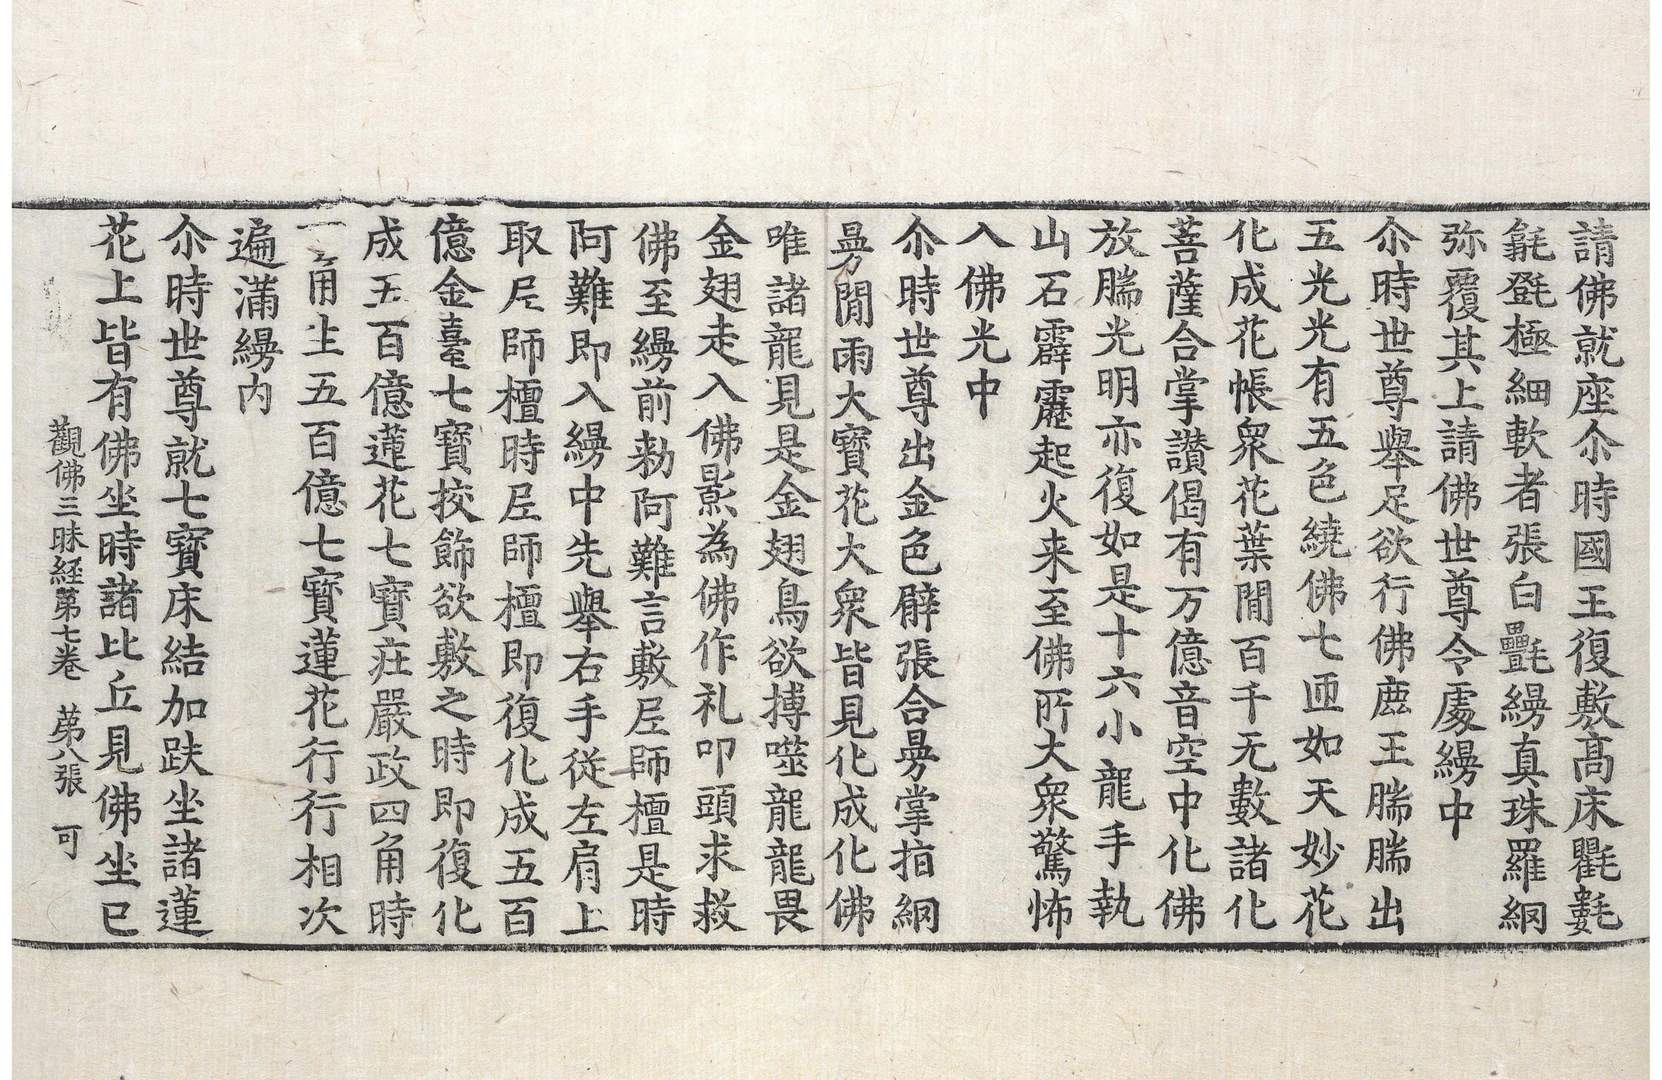 請佛就座尒時國王復敷髙床氍𣰽
毹㲪極細軟者張白㲲縵真珠羅網
弥覆其上請佛世尊令處縵中
尒時世尊舉足欲行佛鹿王腨腨出
五光光有五色繞佛七迊如天妙花
化成花帳衆花葉閒百千无數諸化
菩薩合掌讃偈有万億音空中化佛
放腨光明亦復如是十六小龍手執
山石霹靂起火来至佛所大衆驚怖
入佛光中
尒時世尊出金色臂張合縵掌指網
縵閒雨大寶花大衆皆見化成化佛
唯諸龍見是金翅鳥欲搏噬龍龍畏
金翅走入佛影為佛作礼叩頭求救
佛至縵前勑阿難言敷尼師檀是時
阿難即入縵中先舉右手從左肩上
取尼師檀時尼師檀即復化成五百
億金臺七寶挍飾欲敷之時即復化
成五百億蓮花七寶莊嚴政四角時
一一角生五百億七寶蓮花行行相次
遍滿縵内
尒時世尊就七寶床結加趺坐諸蓮
花上皆有佛坐時諸比丘見佛坐已
觀佛三昧経第七卷 苐八張 可